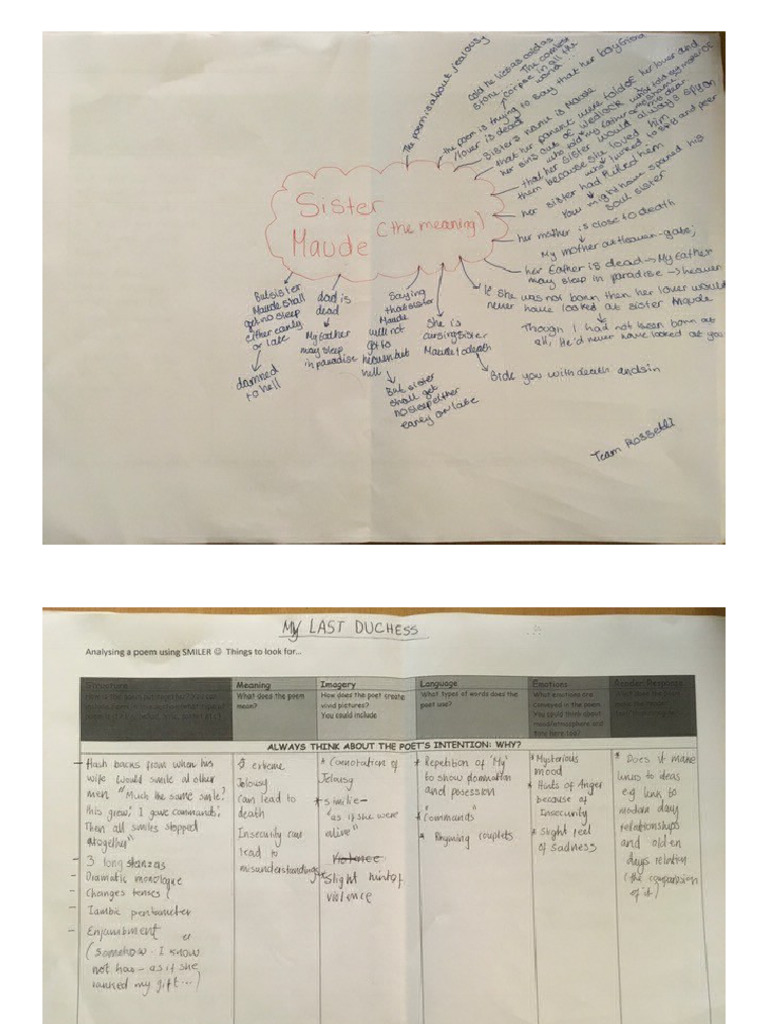 The poem is about jealousy
cold he lies as cold as
stone
The comliest
corpse in all the
world
the poem is trying to say that her boyfriend
/lover is dead
Sisters name is Maude
that her parent were told of her lover and
her sins out of wedlock who told my mother of
my shame
who told my father of my dear
that her sister would always spy on
them because she loved him
who lurked to spy and peer
her sister had killed him
You might have spared his
soul sister
her mother is close to death
My mother at Heaven-gate;
her Father is dead → My Father
may sleep in paradise → heaven
if she was not born then her lover would
never have looked at sister Maude
Though I had not been born at
all, He'd never have looked at you
Sister
Maude
(the meaning)
But sister
Maude shall
get no sleep
either early
or late
damned
to hell
dad is
dead
My father
may sleep
in paradise
Saying
that sister
Maude
will not
get to
heaven but
hell
But sister
shall get
no sleep either
early or late
She is
cursing sister
Maude / death
Bide you with death and sin
Team Rossetti
MY LAST DUCHESS
Analysing a poem using SMILER ☺ Things to look for...
Structure
Meaning
What does the poem
mean?
Imagery
How does the poet create
vivid pictures?
You could include
Language
What types of words does the
poet use?
Emotions
What emotions are
conveyed in the poem
You could think about
mood/atmosphere and
tone here too?
Reader Response
ALWAYS THINK ABOUT THE POET'S INTENTION: WHY?
- flash backs from when his
wife would smile at other
men "Much the same smile?
this grew; I gave commands;
Then all smiles stopped
altogether"
- 3 long stanzas
- Dramatic monologue
- Changes tenses
- Iambic pentameter
- Enjambment
(somehow - I know
not how - as if she
ranked my gift...)
extreme
Jelousy
can lead to
death
Insecurity can
lead to
misunderstandings
* Connotation of
Jelousy
* similie -
"as if she were
alive"
Violence
* Slight hint of
violence
* Repetion of 'My'
to show domination
and posession
* "Commands"
* Rhyming couplets
* Mysterious
mood
* Hints of Anger
because of
Insecurity
* Slight feel
of sadness
* Does it make
links to ideas
eg link to
modern day
relationships
and olden
days relation
(the comparison
of it)